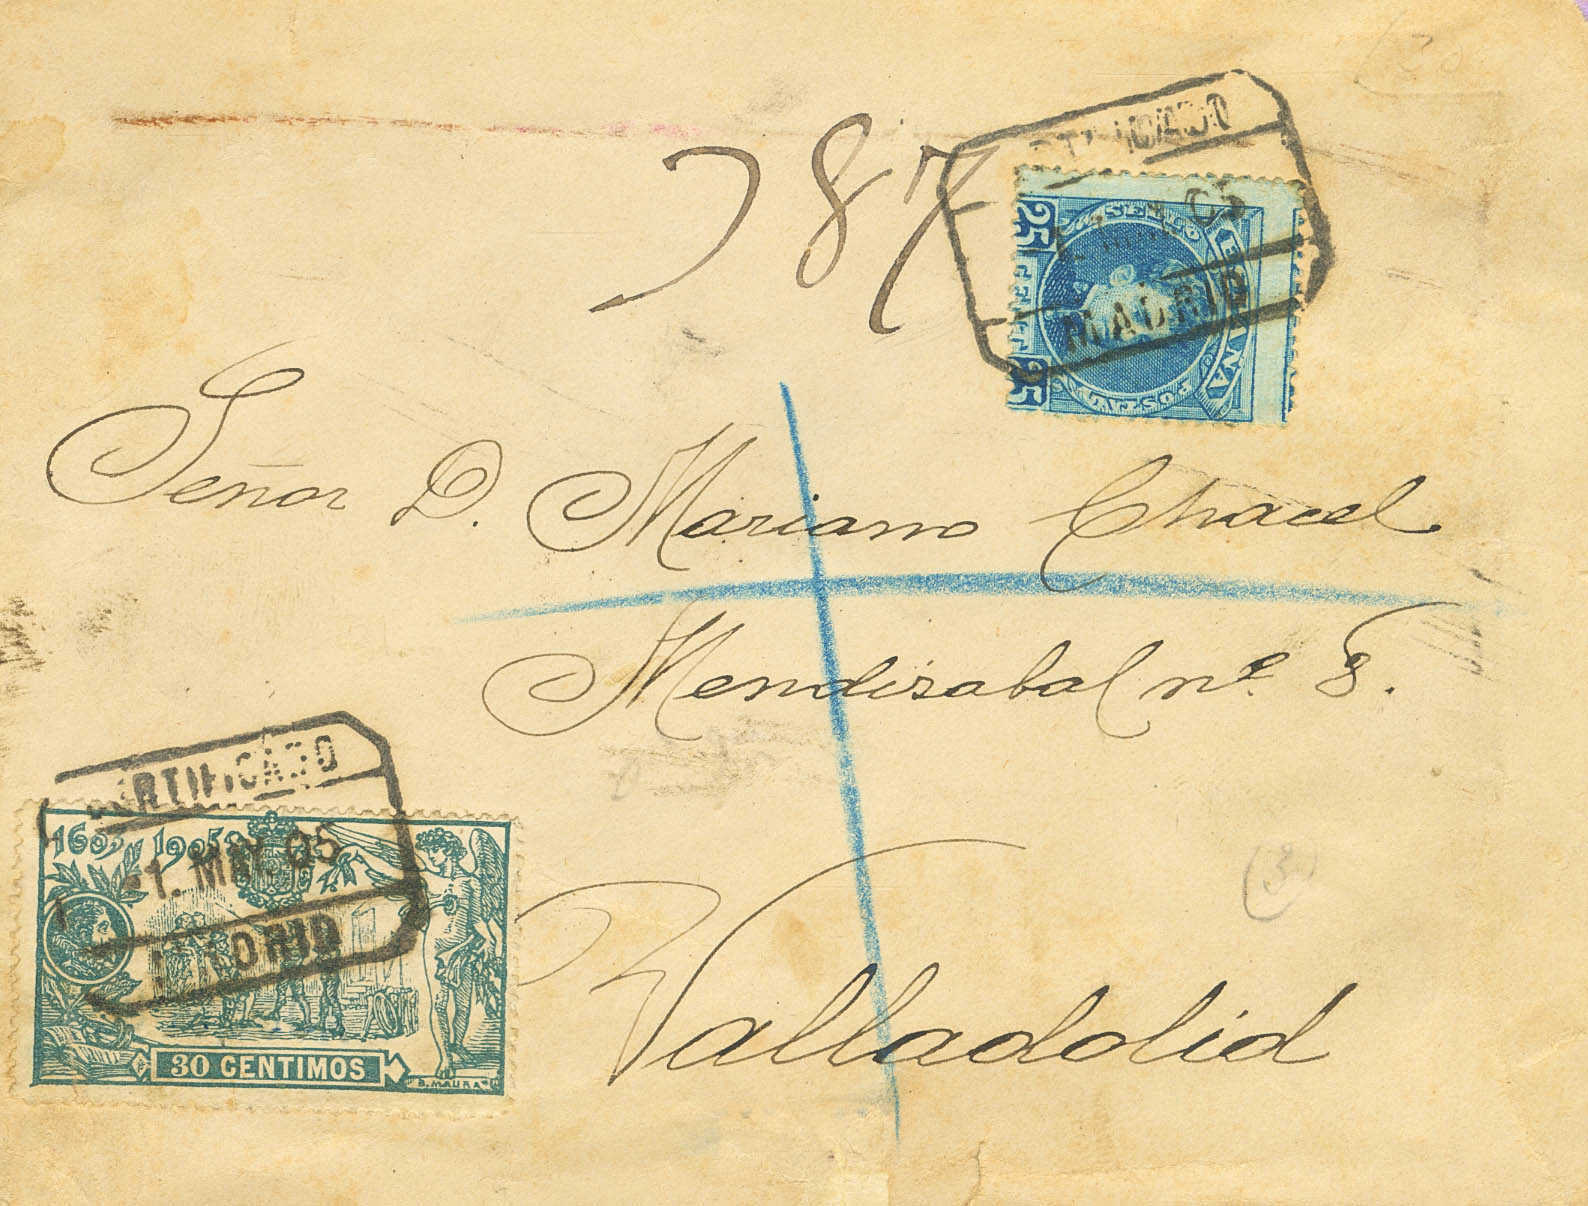 787
CERTIFICADO
05
MADRID
25
SELLO
25
POSTAL
Señor D. Mariano Chacel
Mendizabal nº 8.
Valladolid
(3)
CERTIFICADO
1605 1905
-1. MAY. 05
MADRID
30 CENTIMOS
B. MAURA